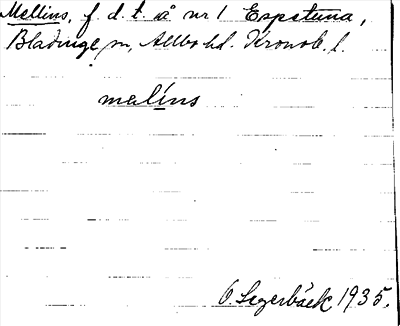 Mellins, f. d. t. å nr 1 Espetuna,
Blädinge sn, Allbo hd. Kronob. l.
melíns
O. Segerbäck 1935.